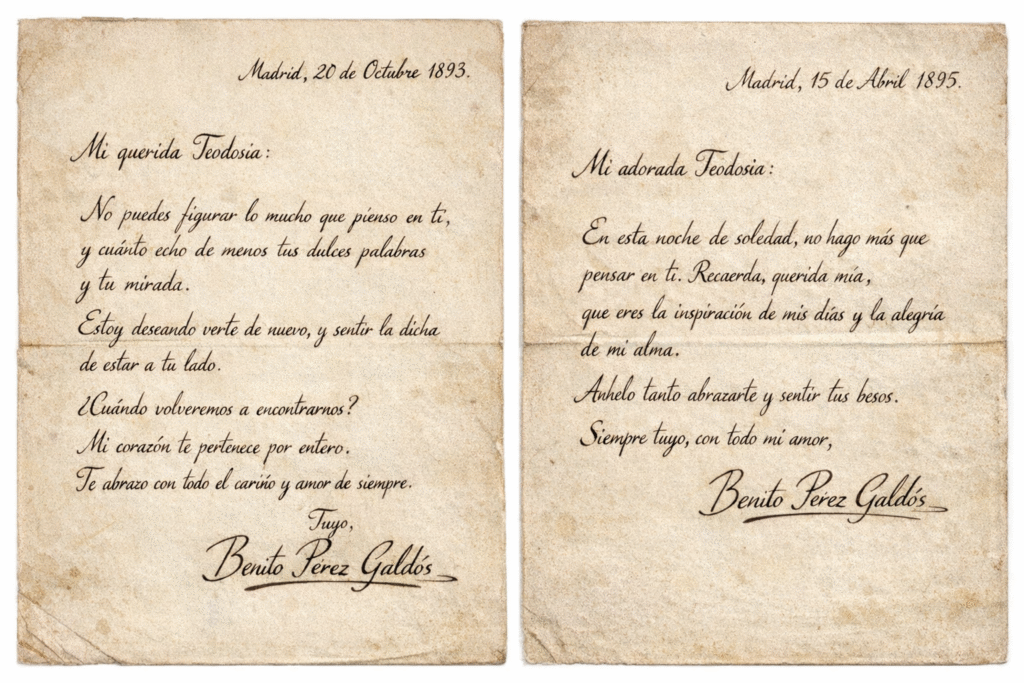 Madrid, 20 de Octubre 1893.
Mi querida Teodosia:
No puedes figurar lo mucho que pienso en ti,
y cuánto echo de menos tus dulces palabras
y tu mirada.
Estoy deseando verte de nuevo, y sentir la dicha
de estar a tu lado.
¿Cuándo volveremos a encontrarnos?
Mi corazón te pertenece por entero.
Te abrazo con todo el cariño y amor de siempre.
Tuyo,
Benito Pérez Galdós
Madrid, 15 de Abril 1895.
Mi adorada Teodosia:
En esta noche de soledad, no hago más que
pensar en ti. Recaerda, querida mía,
que eres la inspiración de mis días y la alegría
de mi alma.
Anhelo tanto abrazarte y sentir tus besos.
Siempre tuyo, con todo mi amor,
Benito Pérez Galdós